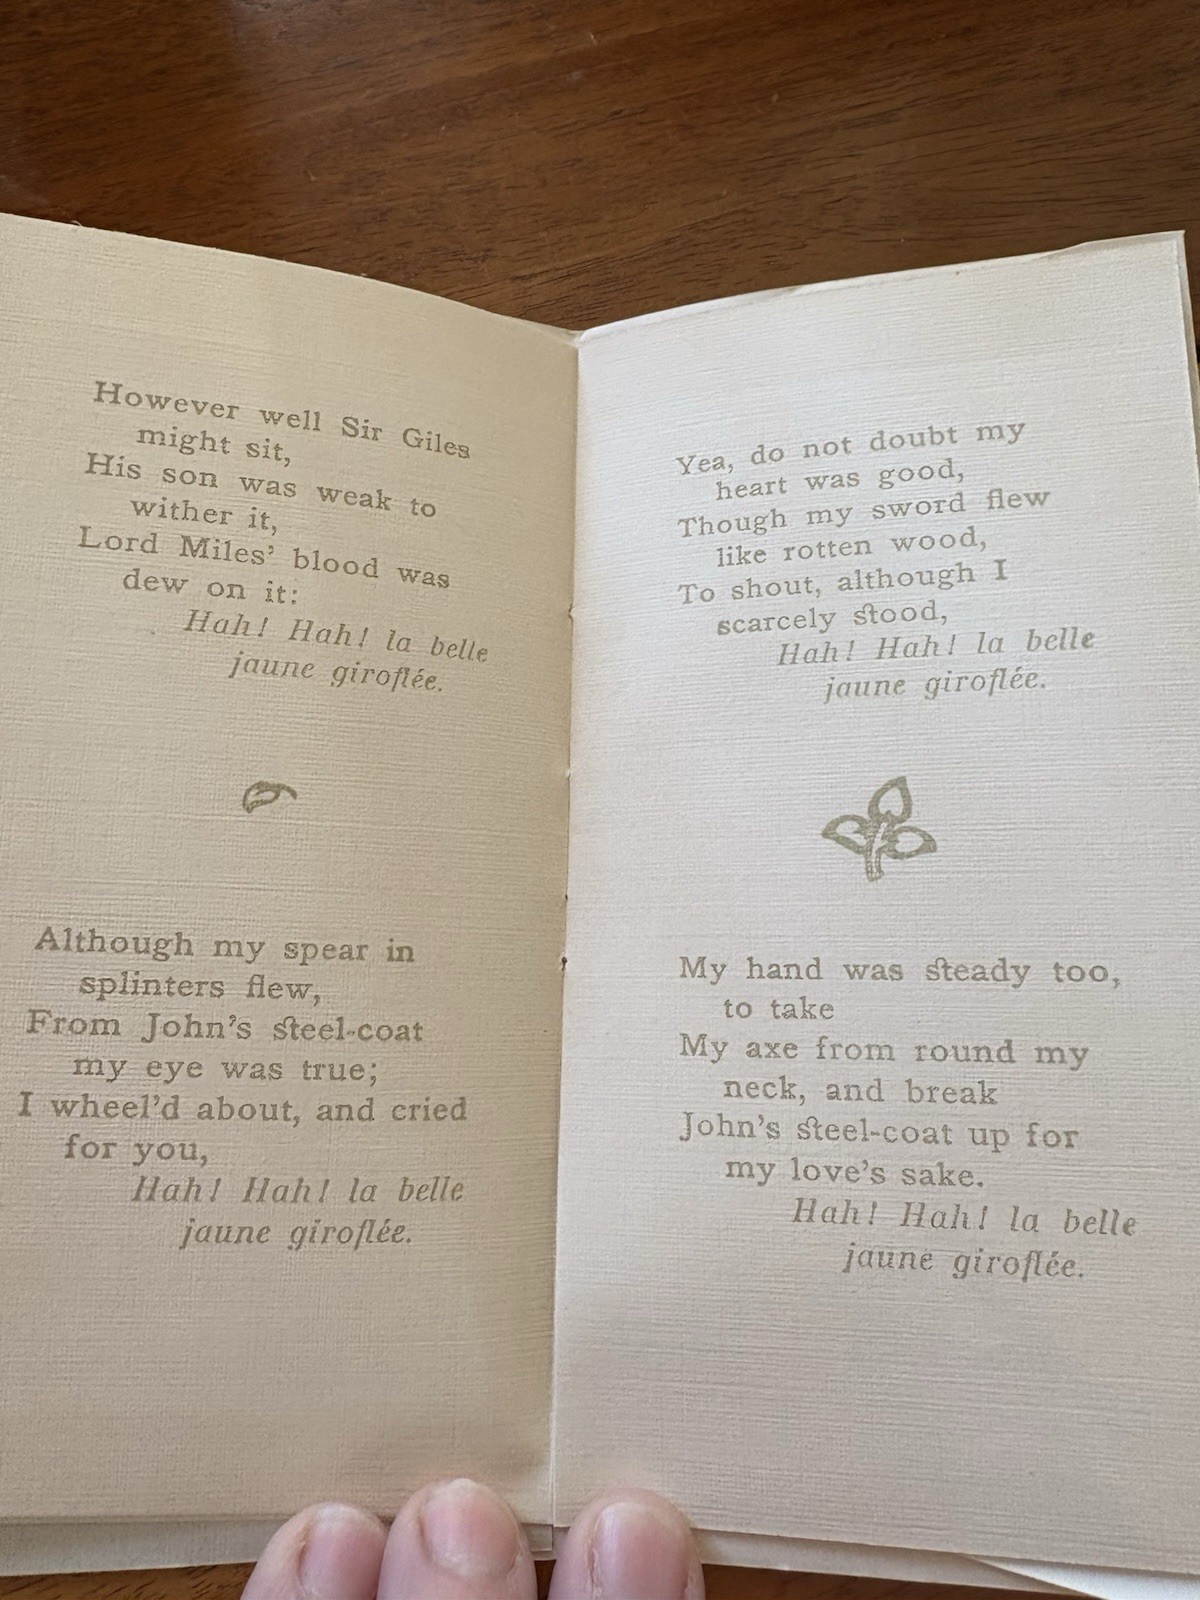 However well Sir Giles
might sit,
His son was weak to
wither it,
Lord Miles’ blood was
dew on it:
Hah! Hah! la belle
jaune giroflée.
Although my spear in
splinters flew,
From John’s steel-coat
my eye was true;
I wheel’d about, and cried
for you,
Hah! Hah! la belle
jaune giroflée.
Yea, do not doubt my
heart was good,
Though my sword flew
like rotten wood,
To shout, although I
scarcely stood,
Hah! Hah! la belle
jaune giroflée.
My hand was steady too,
to take
My axe from round my
neck, and break
John’s steel-coat up for
my love’s sake.
Hah! Hah! la belle
jaune giroflée.